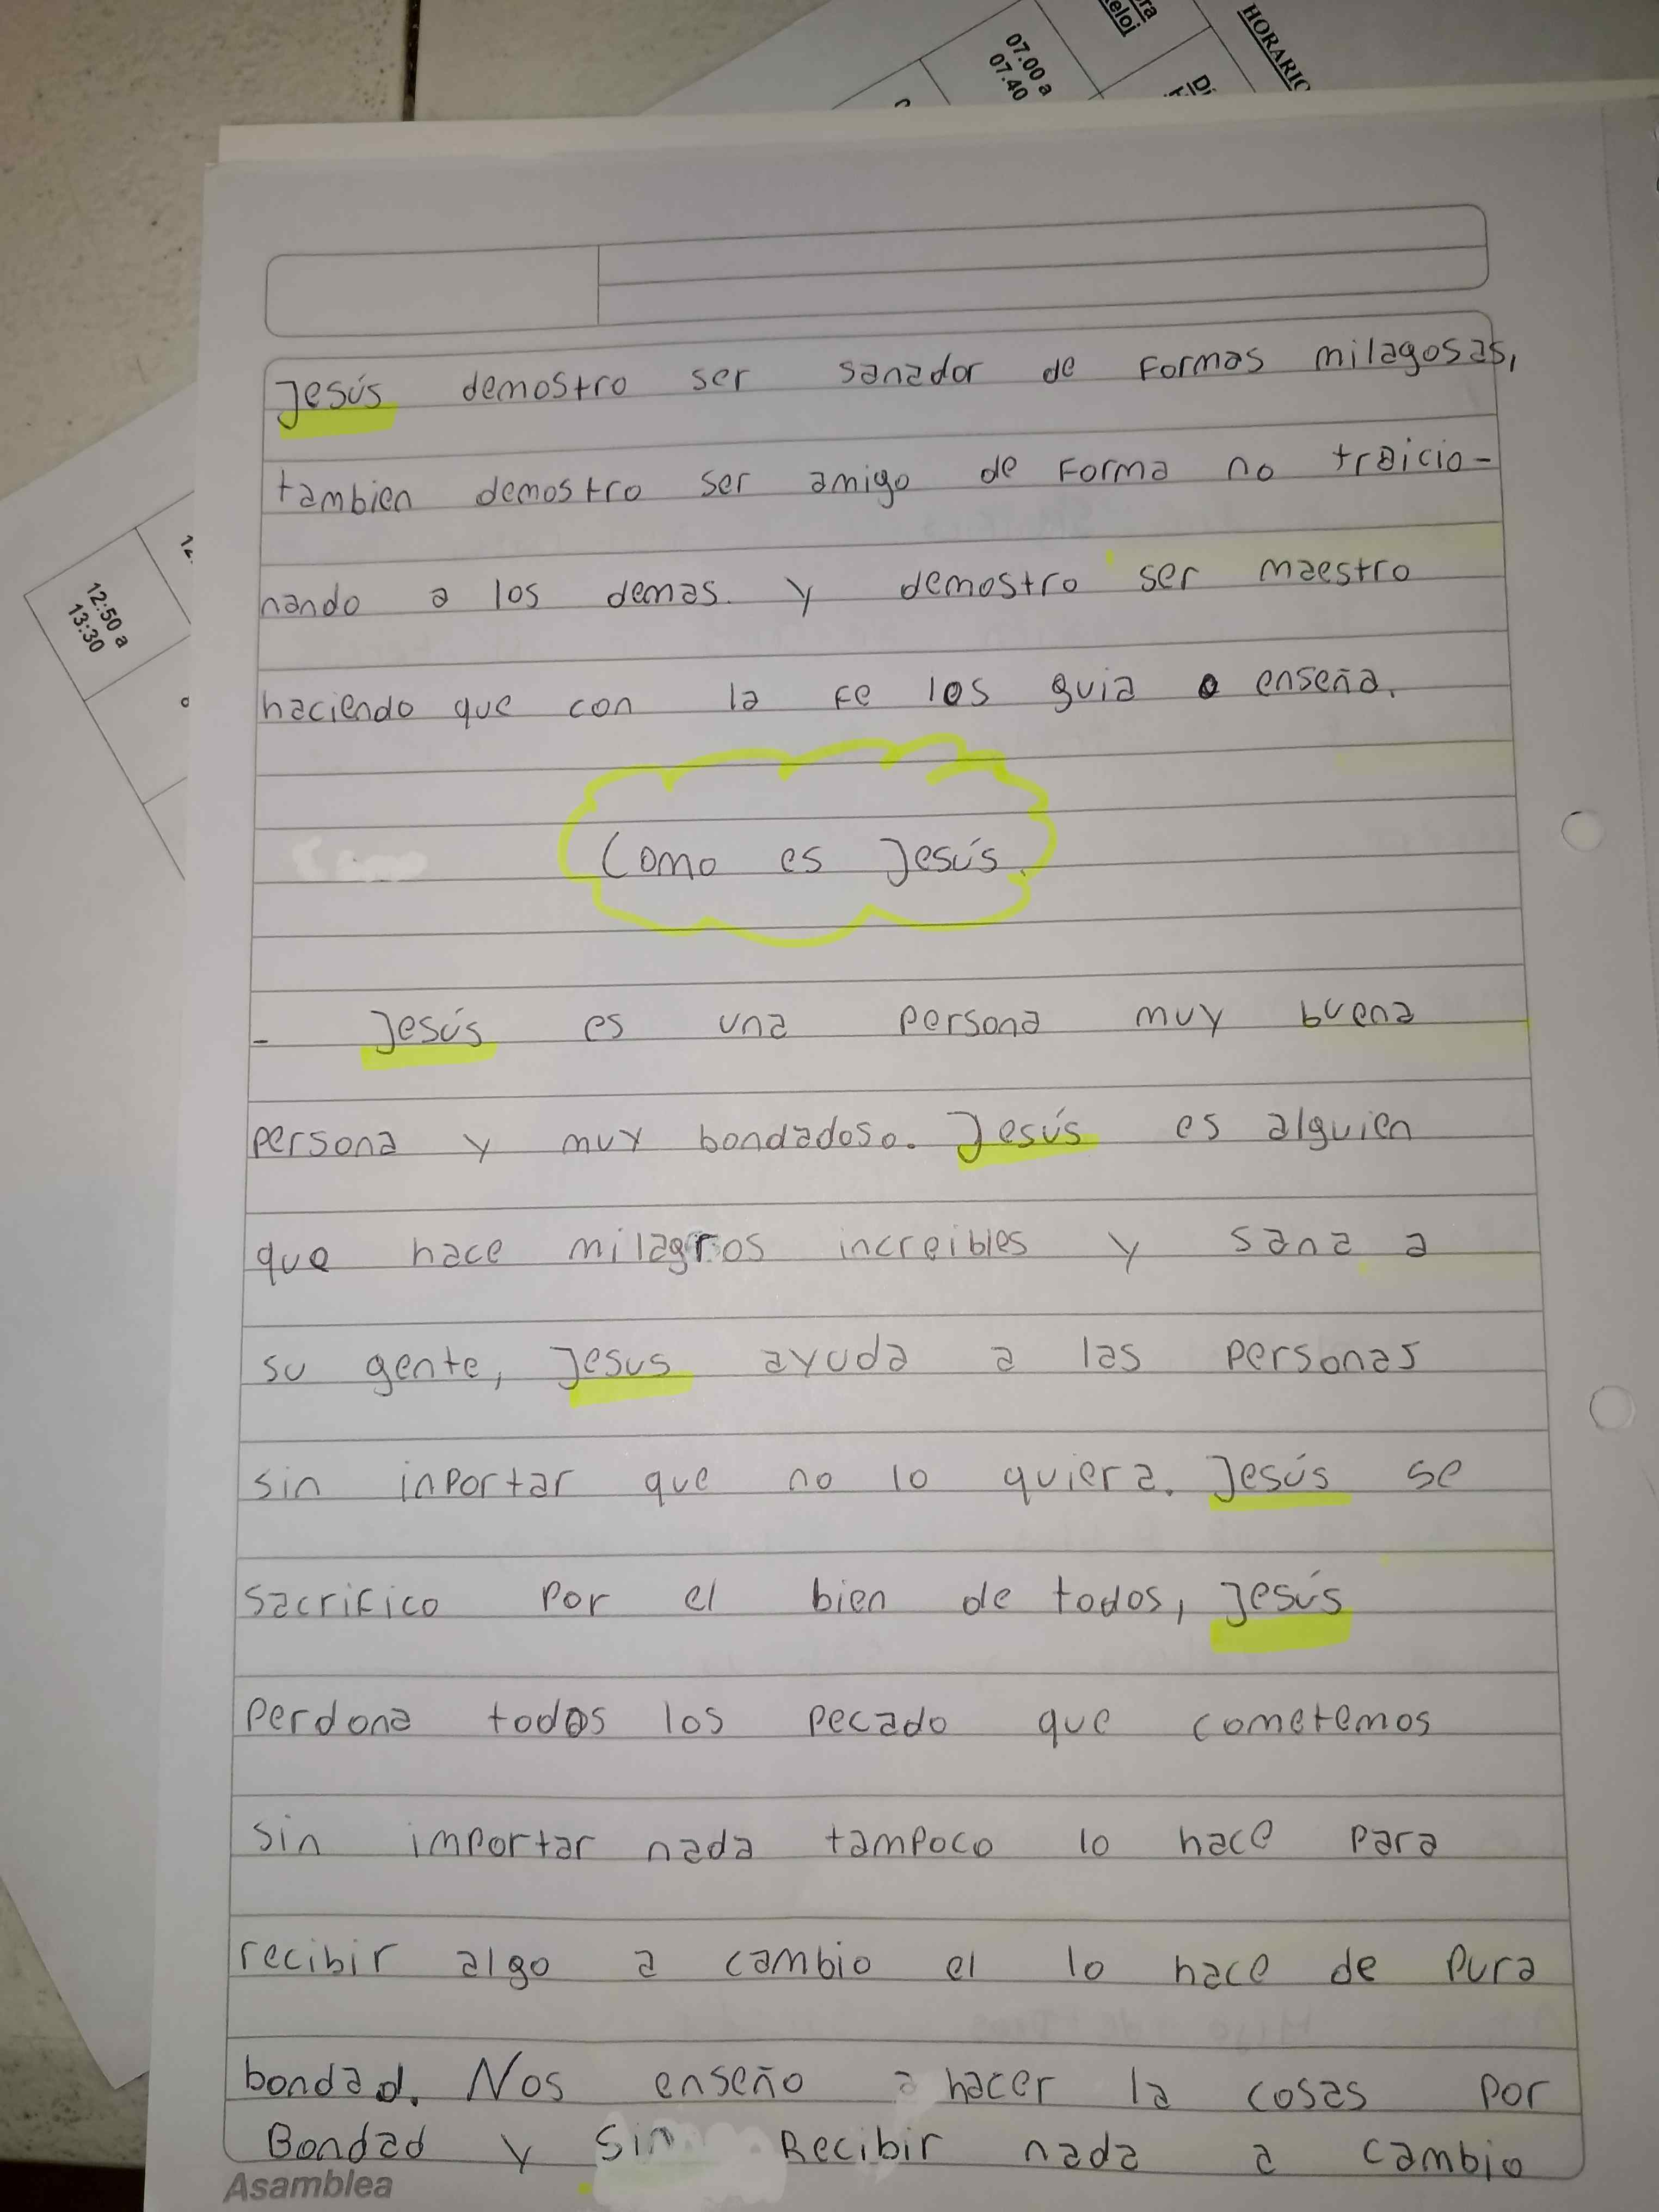 HORARIO
07.00 a
07.40
12:50 a
13:30
Jesús demostro ser sanador de formas milagosas,
tambien demostro ser amigo de forma no traicio-
nando a los demas. y demostro ser maestro
haciendo que con la fe los guia o enseña.
Como es Jesús.
- Jesús es una persona muy buena
persona y muy bondadoso. Jesús es alguien
que hace milagros increibles y sana a
su gente, Jesus ayuda a las personas
sin inportar que no lo quiera. Jesús se
sacrifico por el bien de todos, Jesús
perdona todos los pecado que cometemos
sin importar nada tampoco lo hace para
recibir algo a cambio el lo hace de pura
bondad. Nos enseño a hacer la cosas por
Bondad y Sin Recibir nada a cambio
Asamblea